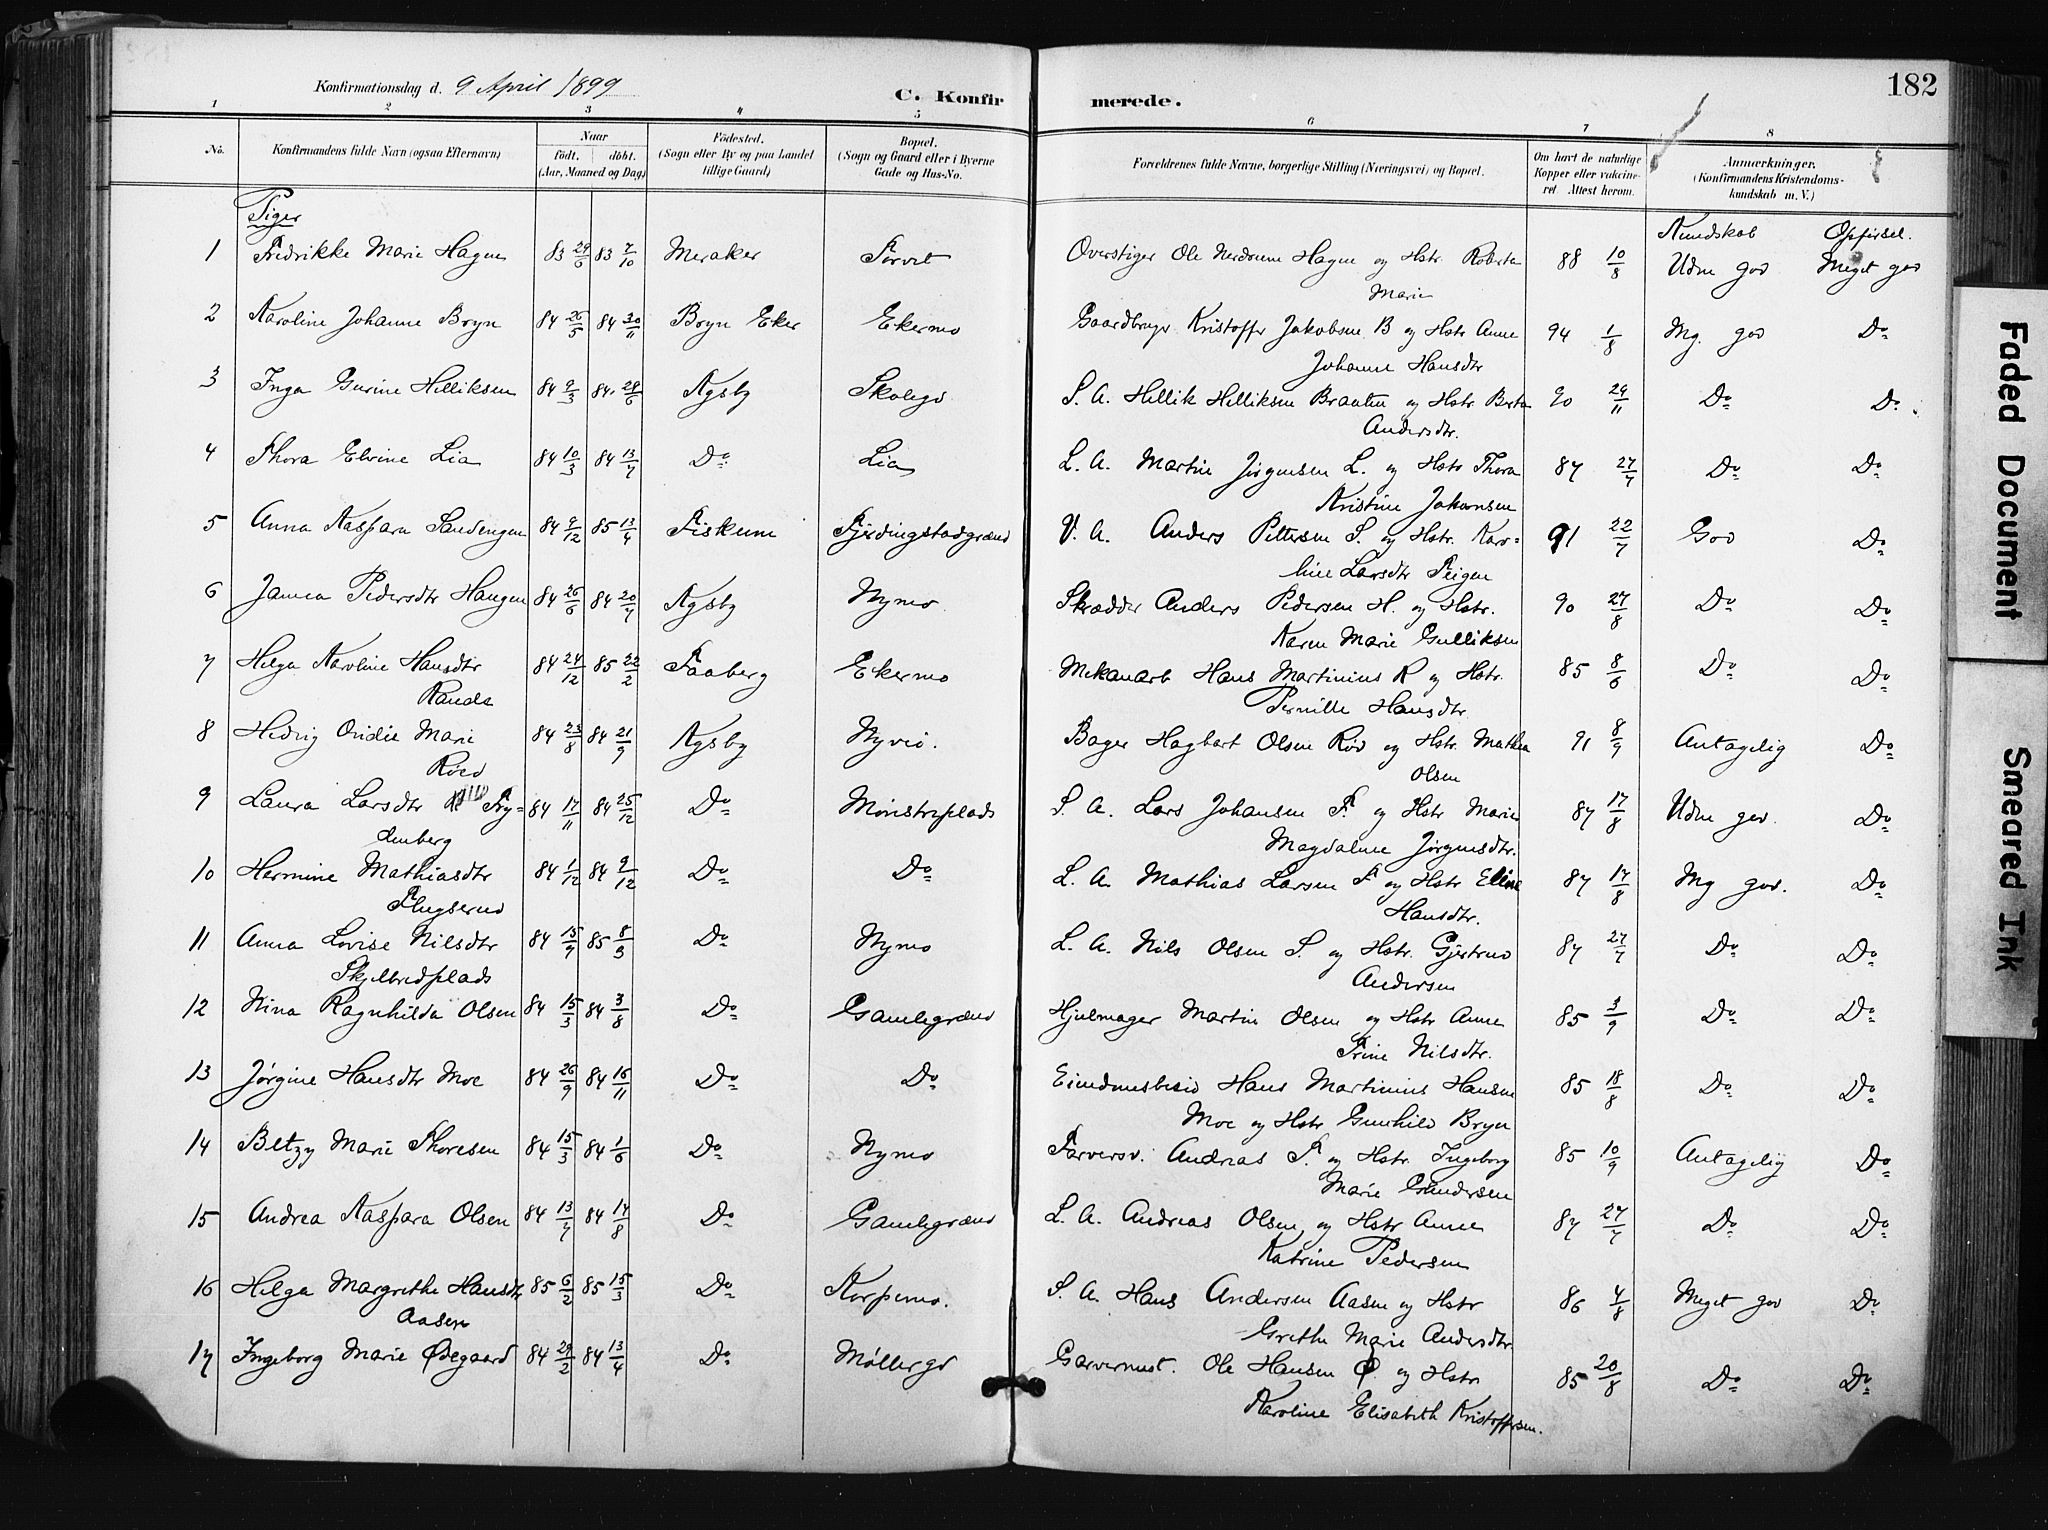 182
Konfirmationsdag d. 9 April 1899
C. Konfirmerede.
1 2 3 4 5 6 7 8
No. Konfirmandens fulde Navn (ogsaa Efternavn) Naar födt. döbt. (Aar, Maaned og Dag) Födested. (Sogn eller By og paa Landet tillige Gaard) Bopæl. (Sogn og Gaard eller i Byerne Gade og Hus-No. Forældrenes fulde Navne, borgerlige Stilling (Næringsvei) og Bopæl. Om havt de naturlige Kopper eller vakcineret Attest herom. Anmærkninger. (Konfirmandens Kristendomskundskab m. V.)
Piger Kundskab Opførsel.
1 Fredrikke Marie Hagen 83 29/6 83 7/10 Meraker Torvet Overstiger Ole Hagen og Hstr. Roberta 88 10/8 Udm god Meget god
Marie
2 Karoline Johanne Bryn 84 26/5 84 30/11 Bryn Eker Ekermo Gaardbruger Kristoffer Jakobsen B og Hstr Anne 94 1/8 Mg. god Do
Johanne Hansdtr
3 Inga Gurine Helliksen 84 9/3 84 28/6 Agsby Skolegd S. A. Hellik Helliksen Braaten og Hstr Berta 90 29/11 Do Do
Andersdtr.
4 Thora Elvine Lia 84 10/3 84 13/7 Do Lia L. A. Martin Jørgensen L. og Hstr Thora 87 27/7 Do Do
Kristine Johansen
5 Anna Kaspara Sandengen 84 9/12 85 13/4 Fiskum Fjerdingstadgrænd V. A. Anders Pettersen S. og Hstr. Karo-
91 22/7 God Do
line Larsdtr Teigen
6 Janna Pedersdtr Haugen 84 26/6 84 20/7 Agsby Nymo Skrædder Anders Pedersen H. og Hstr. 90 27/8 Do Do
Karen Marie Gulliksen
7 Helga Karoline Hansdtr 84 24/12 85 22/2 Faaberg Ekermo Mekanarb Hans Martinius R og Hstr. 85 8/6 Do Do
Rands Pernille Hansdtr
8 Hedvig Ovidie Marie 84 23/8 84 21/9 Agsby Nyveó. Bager Hagbart Olsen Röd og Hstr. Mathea 91 8/9 Antagelig Do
Röed Olsen
9 Laura Larsdtr Fry- 84 17/11 84 25/12 Do Mönstreplads S. A. Lars Johansen F. og Hstr Marie 87 17/8 Udm god. Do
denberg Magdalene Jørgensdtr.
10 Hermine Mathiasdtr 84 1/12 84 9/12 Do Do L. A. Mathias Larsen F og Hstr Eline 87 17/8 Mg god. Do
Flugserud Hansdtr.
11 Anna Lovise Nilsdtr 84 15/9 85 8/3 Do Nymo L. A. Nils Olsen S. og Hstr. Gjertrud 87 27/7 Do Do
Skjelbredplads Andersen
12 Nina Ragnhilda Olsen 84 15/3 84 3/8 Do Gamlegrænd Hjulmager Martin Olsen og Hstr Anne 85 3/9 Do Do
Trine Nilsdtr.
13 Jørgine Hansdtr Moe 84 26/9 84 16/11 Do Do Hans Martinius Hansen 85 18/8 Do Do
Moe og Hstr Gunhild Bryn
14 Betzy Marie Thoresen 84 15/3 84 1/6 Do Nymo Farversv. Andreas T. og Hstr. Ingeborg 85 10/9 Antagelig Do
Marie Gundersen
15 Andrea Kaspara Olsen 84 13/7 84 17/8 Do Gamlegrænd L. A. Andreas Olsen og Hstr Anne 87 27/7 Do Do
Katrine Pedersen
16 Helga Margrethe Hansdtr 85 6/2 85 15/3 Do Korpemo. S. A. Hans Andersen Aasen og Hstr 86 4/8 Meget god Do
Aasen Grethe Marie Andersdtr.
17 Ingeborg Marie Ødegaard 84 29/2 84 13/4 Do Møllergd Garvermest. Ole Hansen Ø. og Hstr 85 20/8 Do Do
Karoline Elisabeth Kristoffersen.
Faded Document
Smeared Ink